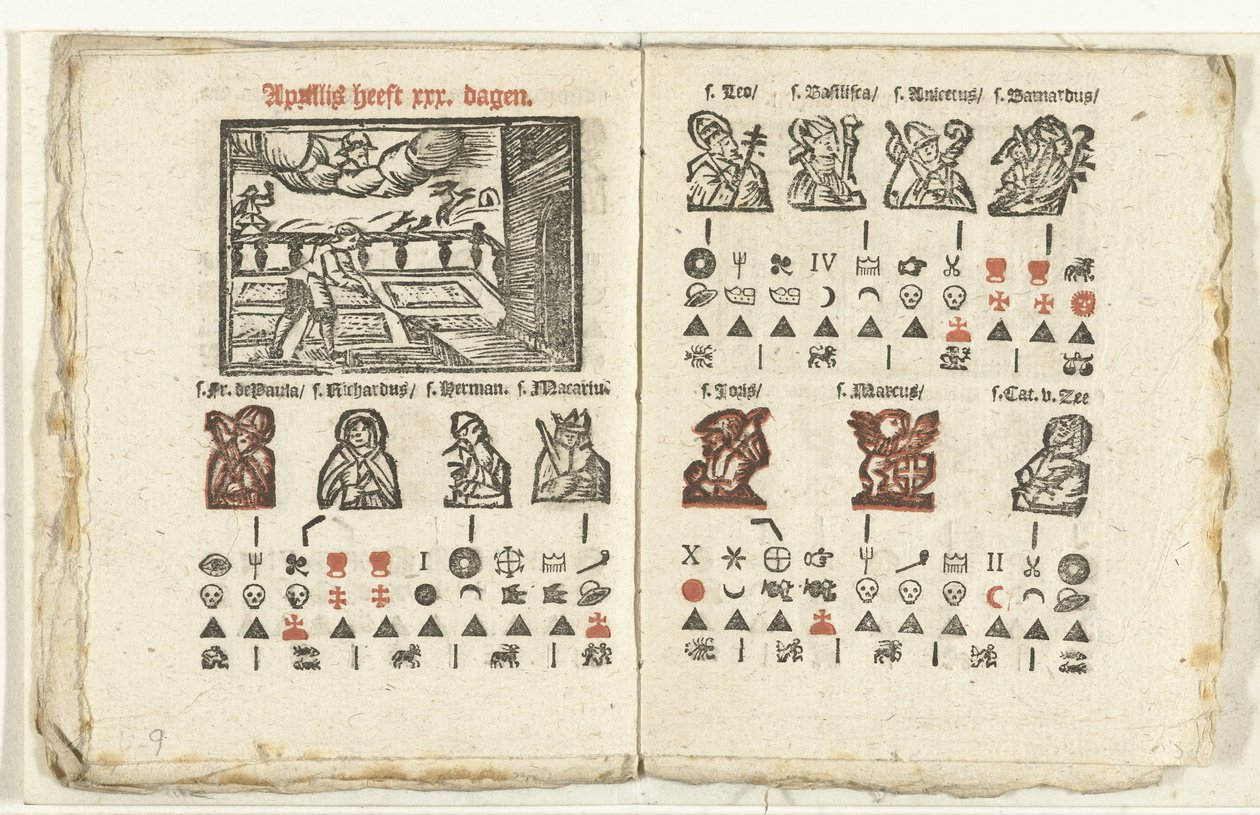 Aprillis heeft xxx. dagen.
s. Fr. dePaula/ s. Richardus/ s. Herman. s. Macariu
I
9
s. Leo/ s. Basilisca/ s. Anicetus/ s. Barnardus/
IV
s. Joris/ s. Marcus/ s. Cat. v. Zee
X II